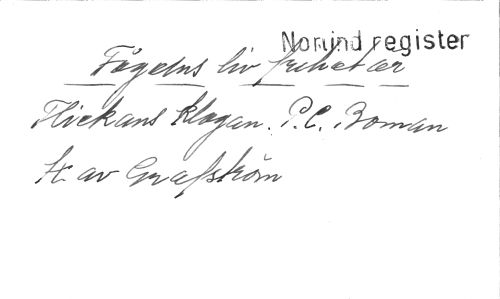 Nomind register
Fågelns liv frihet är
Flickans klagan. P.C. Boman
St. av Grafström